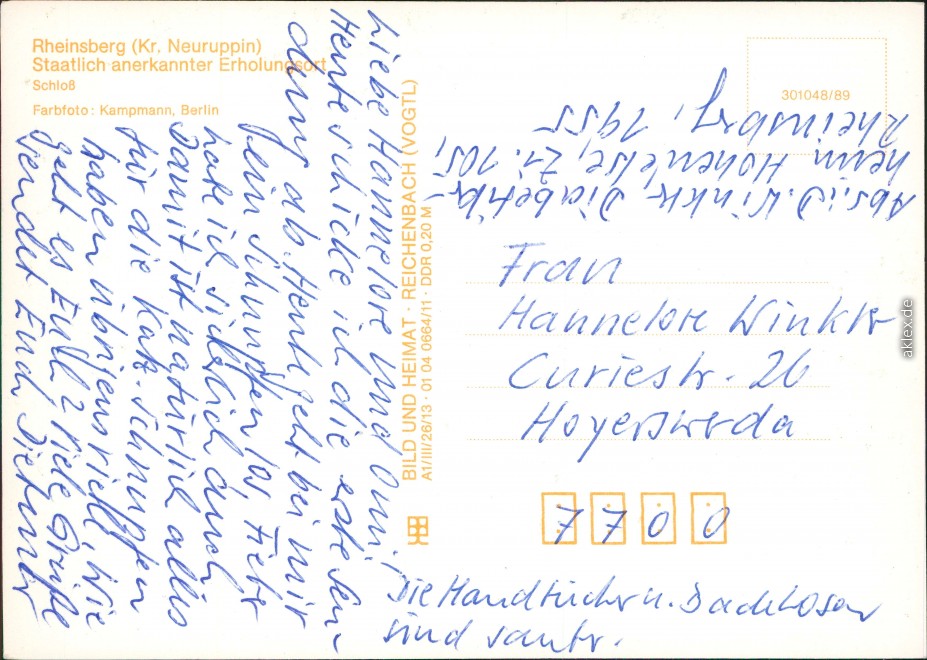 Rheinsberg (Kr. Neuruppin)
Staatlich anerkannter Erholungsort
Schloß
Farbfoto: Kampmann, Berlin
Liebe Hannelore und Omi!
Heute schicke ich die erste Sen-
dung ab. Heute geht bei mir
kein Schnupfen los, Fieber
habe ich sicherlich auch
Damit ist natürlich alles
für die Katz. Schnupfen
haben übrigens viele, wie
geht es Euch 2 viele Grüße
sendet Euch Dietmar
BILD UND HEIMAT · REICHENBACH (VOGTL)
A1/III/26/13 · 01 04 0664/11 · DDR 0,20 M
301048/89
Abs.: D. Winkler Diabetiker-
heim Hohenelse, Zi. 105,
Rheinsberg, 1955
Frau
Hannelore Winkler
Curiestr. 26
Hoyerswerda
7700
Die Handtücher u. Badehosen
sind sauber.
aklex.de